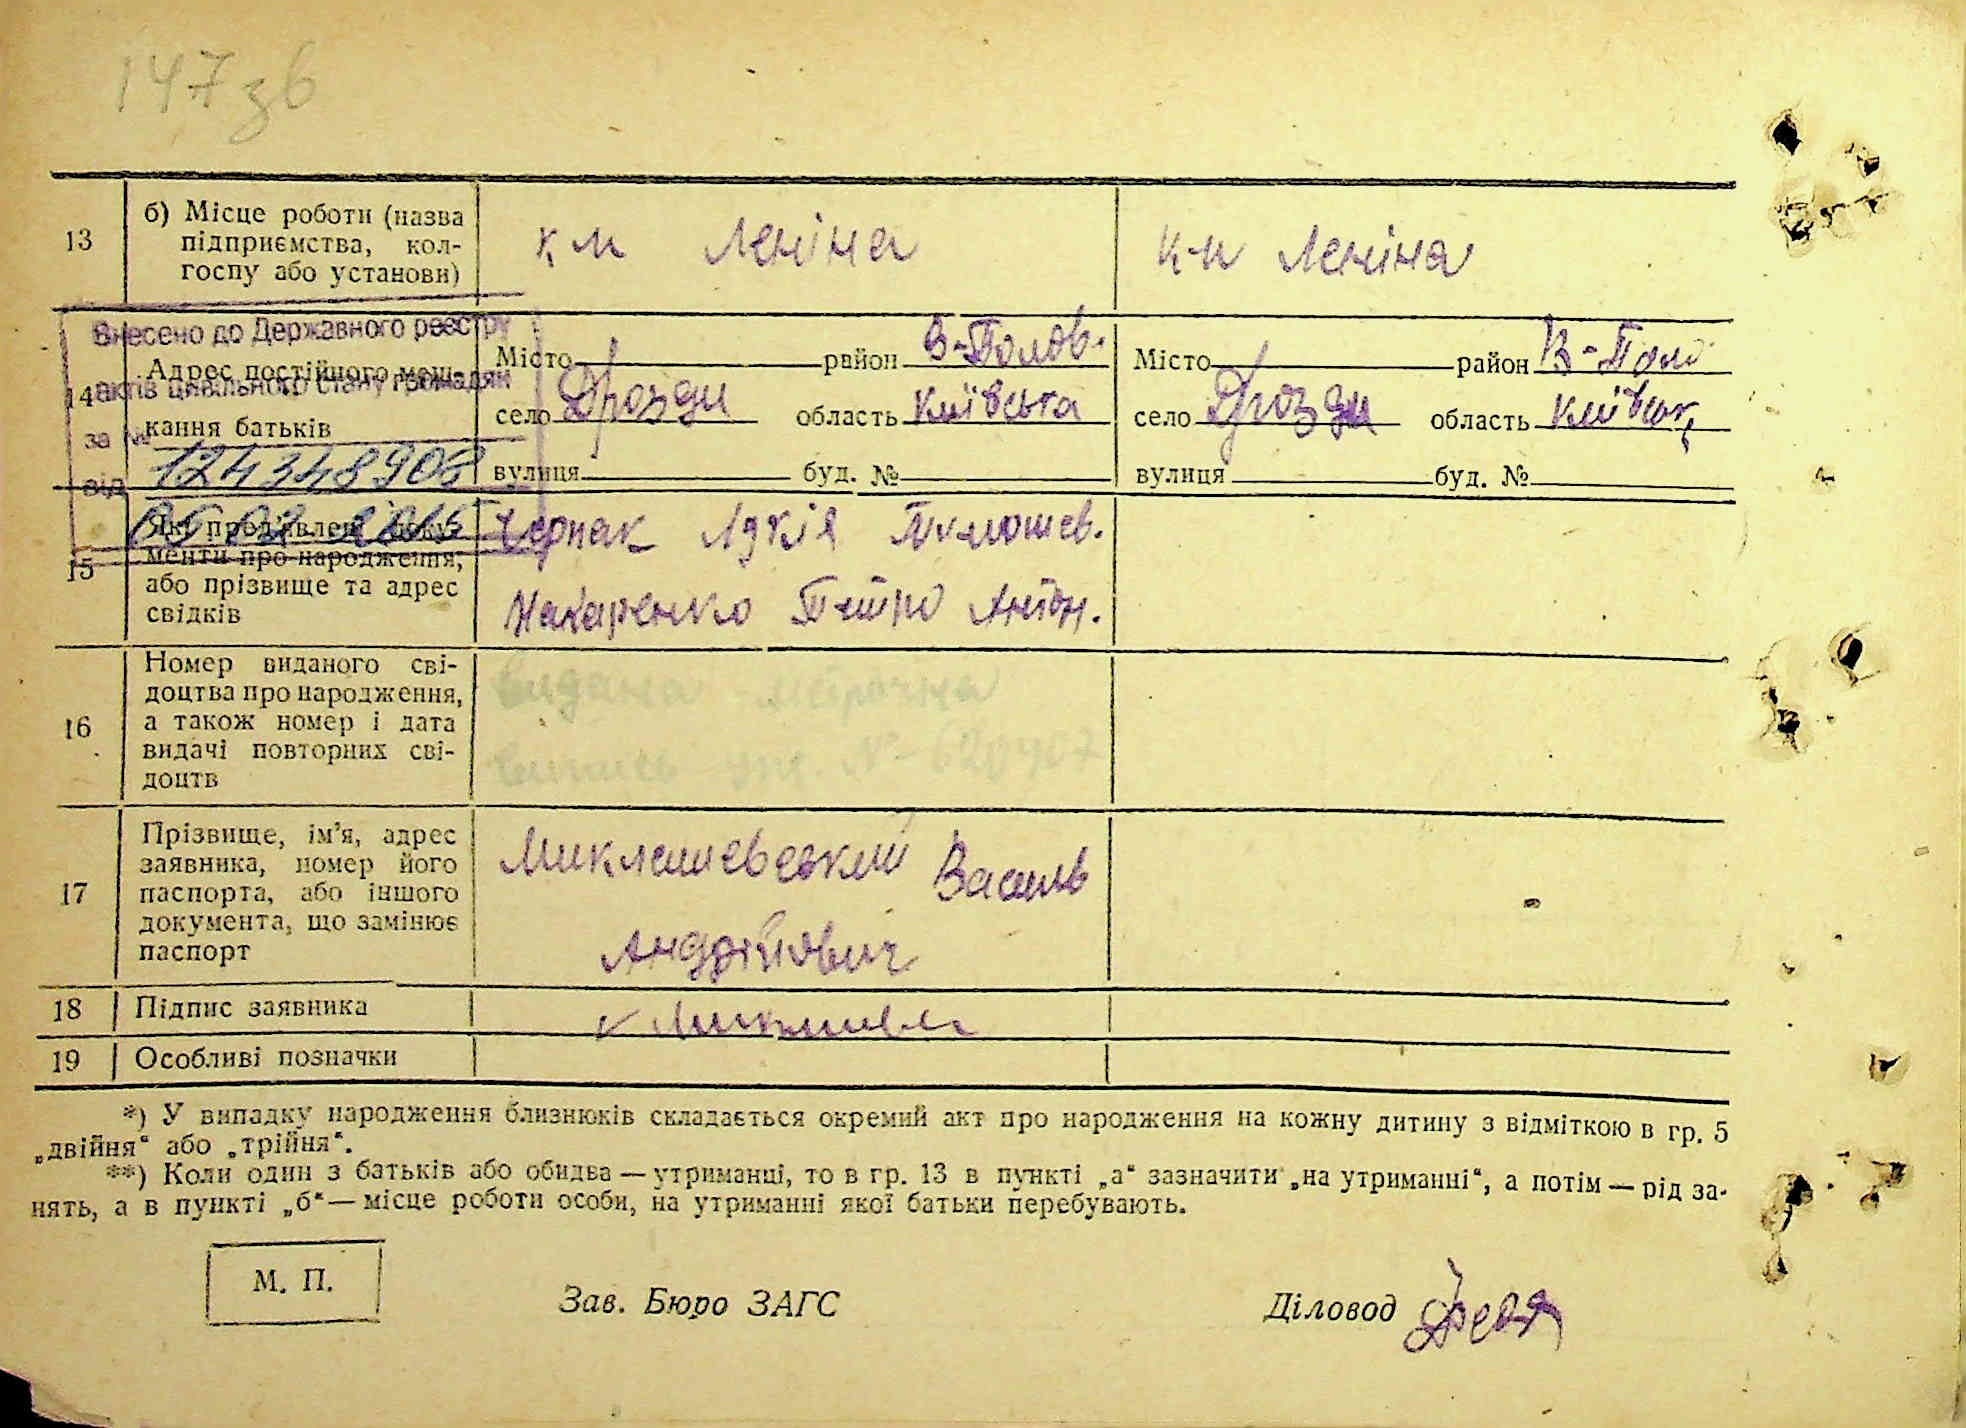 147 зв
13
б) Місце роботи (назва
підприємства, кол-
госпу або установи)
к м Леніна
к м Леніна
Внесено до Державного реєстру
актів цивільного стану громадян
за №
124348903
від
14
Адрес постійного меш-
кання батьків
Місто район В-Полов.
село Дрозди область Київська
вулиця буд. №
Місто район В-Поло
село Дрозди область Київськ
вулиця буд. №
15
Які пред'явлені доку-
менти про народження,
або прізвище та адрес
свідків
Черпак Лукія Тимошев.
Макаренко Петро Антон.
16
Номер виданого сві-
доцтва про народження,
а також номер і дата
видачі повторних сві-
доцтв
видана метрична
випись № 620407
17
Прізвище, ім'я, адрес
заявника, номер його
паспорта, або іншого
документа, що замінює
паспорт
Миклашевський Василь
Андрійович
18
Підпис заявника
19
Особливі позначки
*) У випадку народження близнюків складається окремий акт про народження на кожну дитину з відміткою в гр. 5
„двійня“ або „трійня“.
**) Коли один з батьків або обидва — утриманці, то в гр. 13 в пункті „а“ зазначити „на утриманні“, а потім — рід за-
нять, а в пункті „б“ — місце роботи особи, на утриманні якої батьки перебувають.
М. П.
Зав. Бюро ЗАГС
Діловод